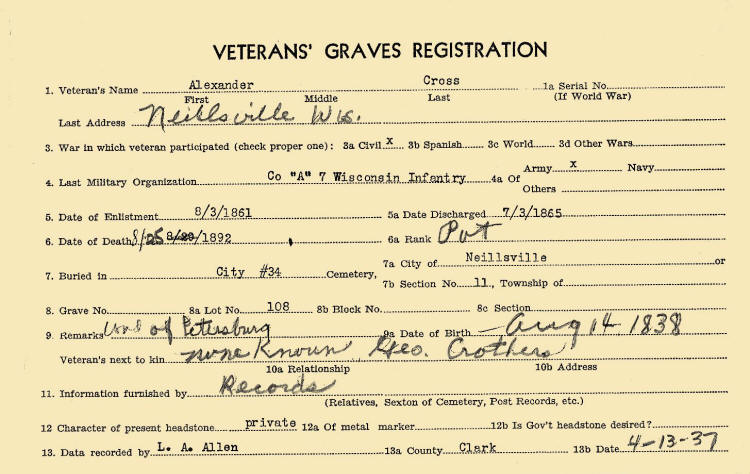 VETERANS' GRAVES REGISTRATION
1. Veteran's Name Alexander Cross 1a Serial No.
First Middle Last (If World War)
Last Address Neillsville Wis.
3. War in which veteran participated (check proper one): 3a Civil x 3b Spanish 3c World 3d Other Wars
4. Last Military Organization Co "A" 7 Wisconsin Infantry 4a Of Army x Navy
Others
5. Date of Enlistment 8/3/1861 5a Date Discharged 7/3/1865
6. Date of Death 8/25 8/29/1892 6a Rank Pvt
7. Buried in City #34 Cemetery, 7a City of Neillsville or
7b Section No. 11, Township of
8. Grave No. 8a Lot No. 108 8b Block No. 8c Section
9. Remarks Wnd of Petersburg 9a Date of Birth Aug 14 1838
Veteran's next to kin none Known Geo. Crothers
10a Relationship 10b Address
11. Information furnished by Records
(Relatives, Sexton of Cemetery, Post Records, etc.)
12 Character of present headstone private 12a Of metal marker 12b Is Gov't headstone desired?
13. Data recorded by L. A. Allen 13a County Clark 13b Date 4-13-37